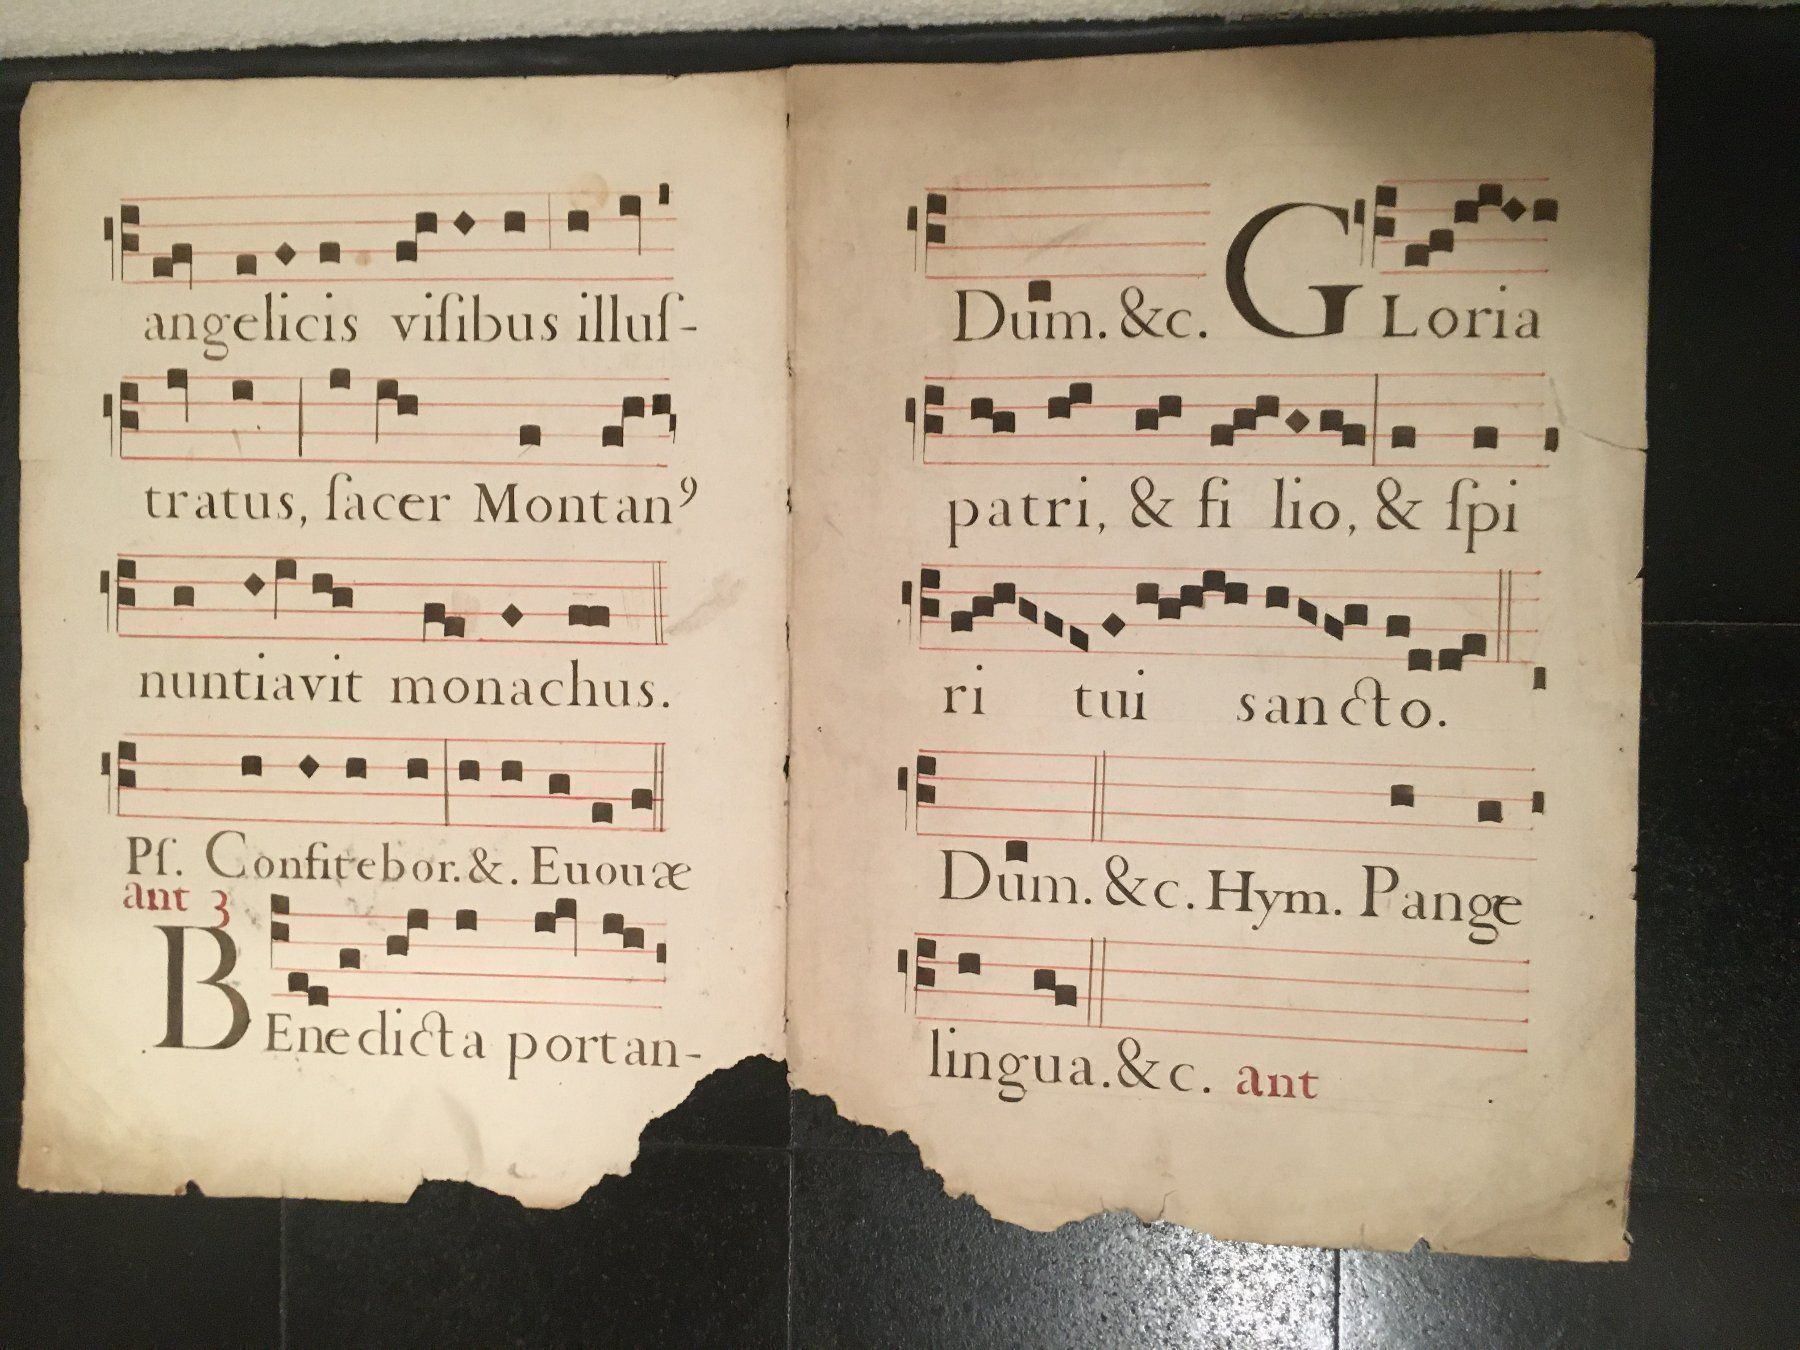 angelicis viſibus illuſ-
tratus, ſacer Montanꝰ
nuntiavit monachus.
Pſ. Confitebor. &. Euouæ
ant 3
BEnedicta portan-
Dum. &c. GLoria
patri, & fi lio, & ſpi
ri tui sancto.
Dum. &c. Hym. Pange
lingua. &c. ant